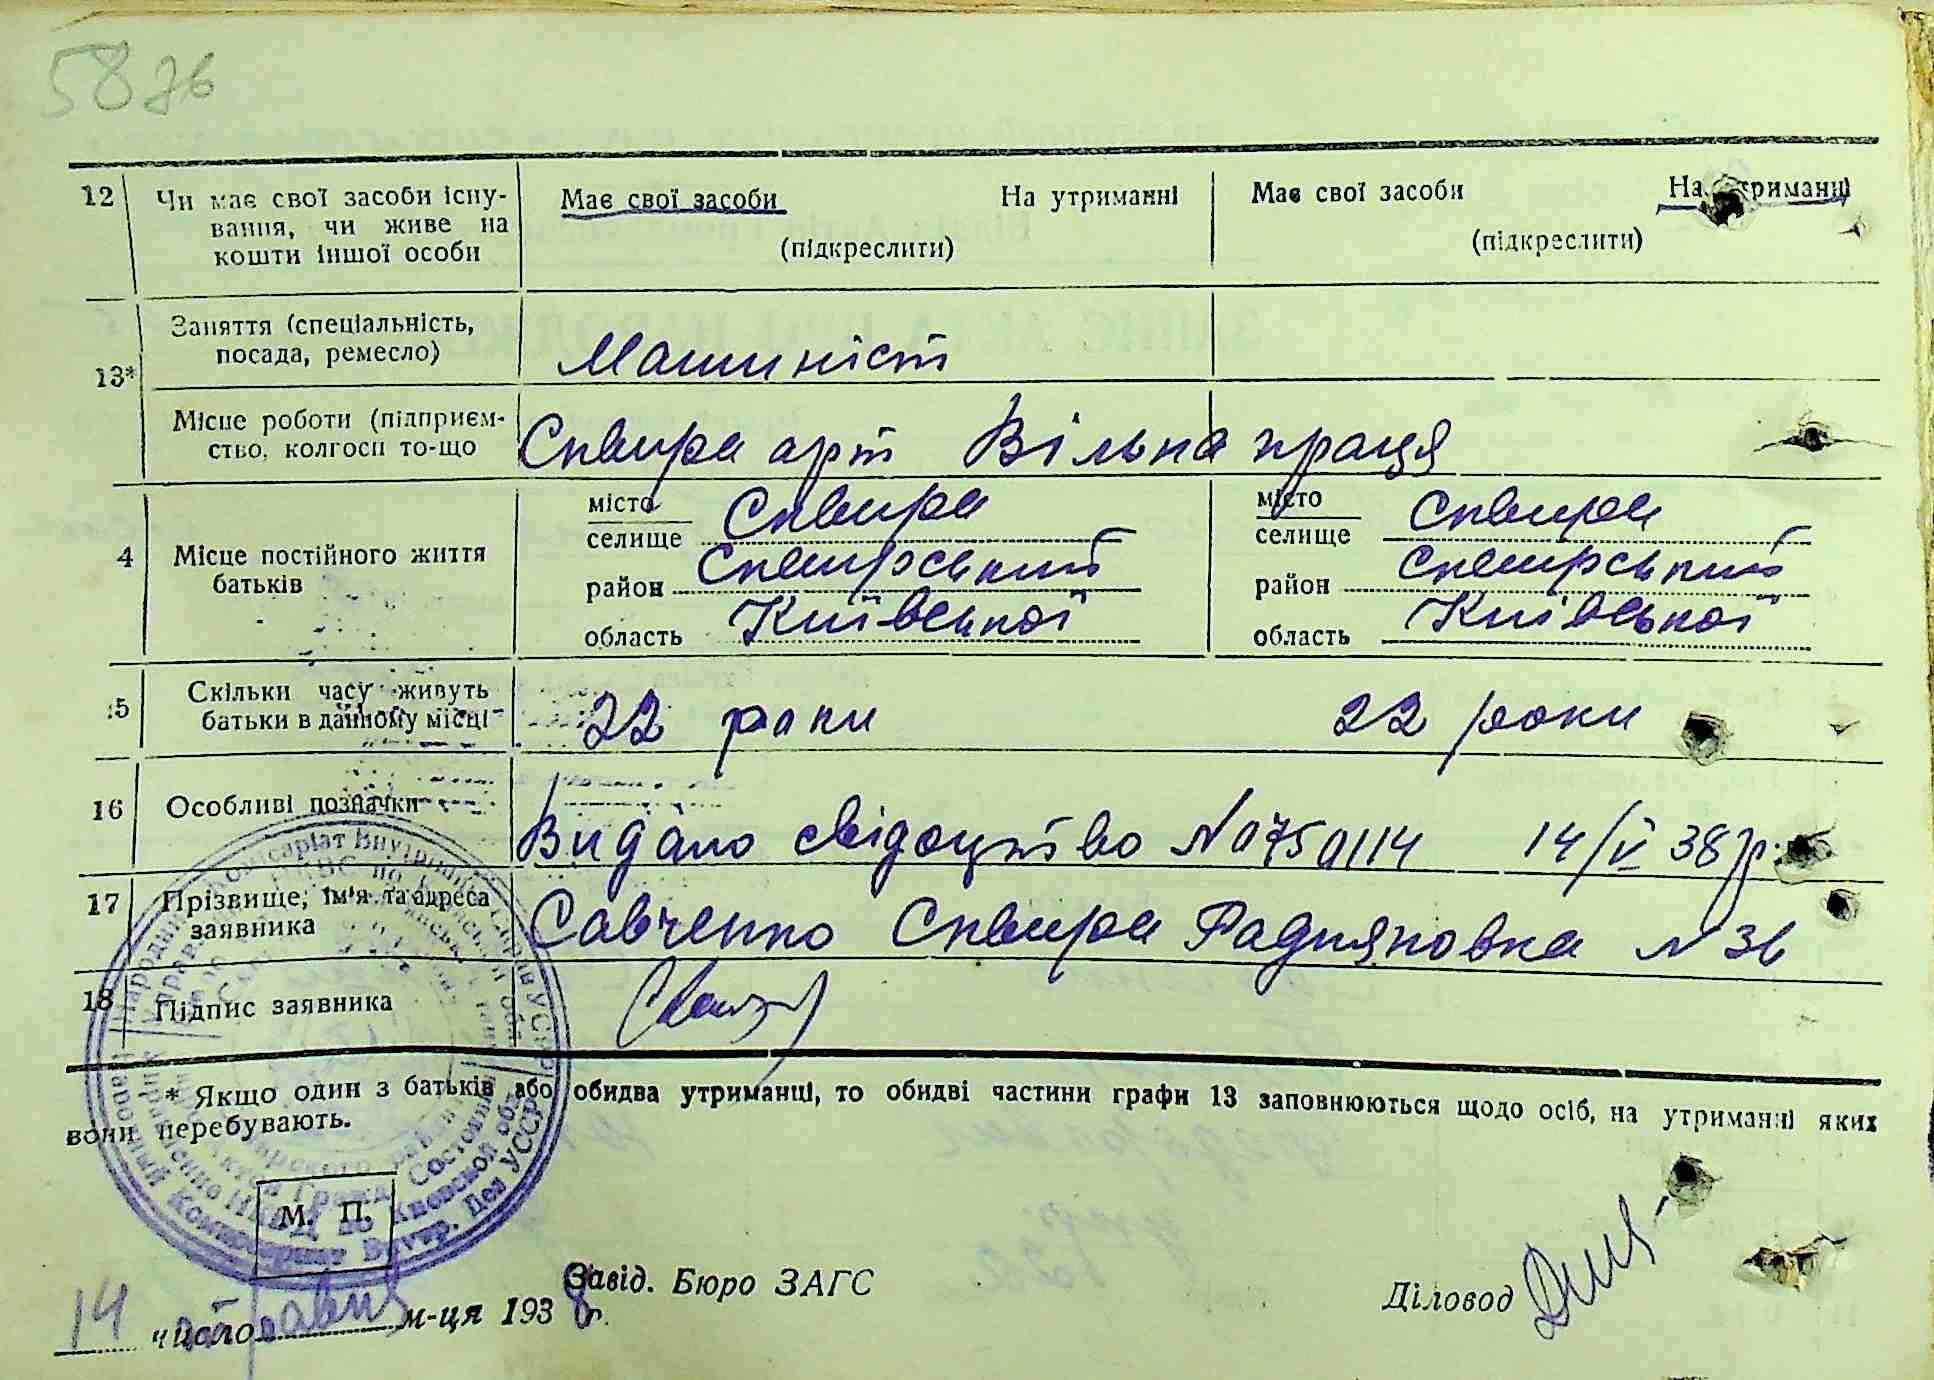 58 зв
12 Чи має свої засоби існу- Має свої засоби На утриманні Має свої засоби На утриманні
вання, чи живе на
кошти іншої особи (підкреслити) (підкреслити)
13* Заняття (спеціальність,
посада, ремесло) Машиніст
Місце роботи (підприєм-
ство, колгосп то-що Сквира арт Вільна праця
4 Місце постійного життя
батьків
місто Сквира місто Сквира
селище селище
район Сквирський район Сквирський
область Київської область Київської
15 Скільки часу живуть
батьки в данному місці 22 роки 22 роки
16 Особливі позначки Видано свідоцтво № 0750114 14/V 38 р.
17 Прізвище, ім'я та адреса
заявника Савченко Сквира Радпяновка N 36
18 Підпис заявника
* Якщо один з батьків або обидва утриманці, то обидві частини графи 13 заповнюються щодо осіб, на утриманні яких
вони перебувають.
Народний Комісаріат Внутрішніх Справ УСРР
Народный Комиссариат Внутр. Дел УССР
М. П.
Завід. Бюро ЗАГС
Діловод
14 число травня м-ця 1938 р.